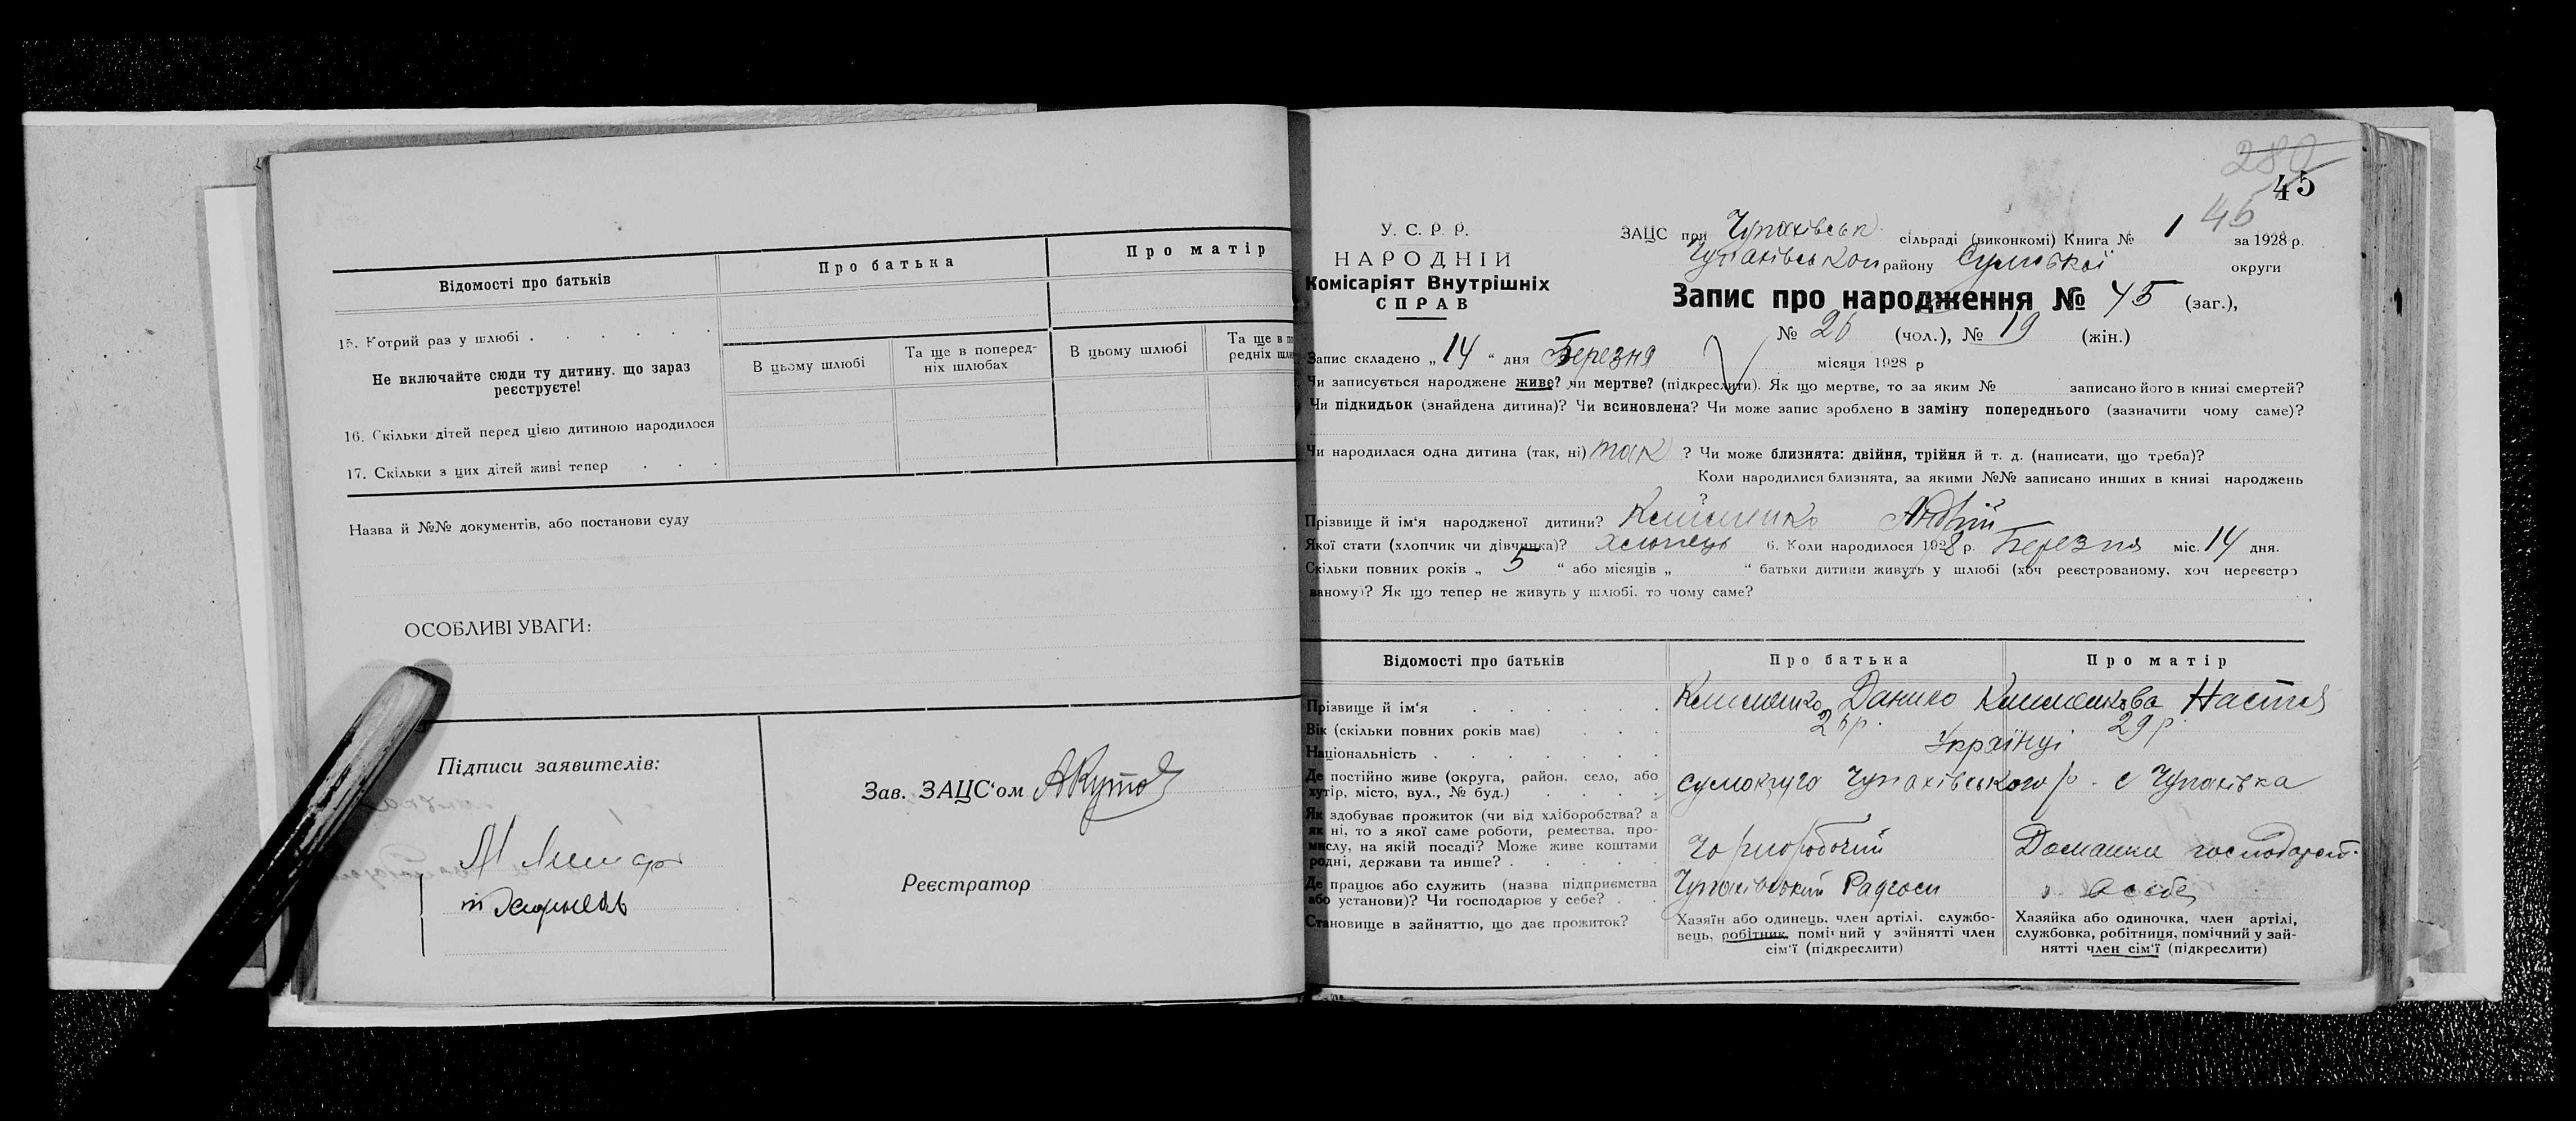 Відомості про батьків
Про батька
Про матір
15. Котрий раз у шлюбі
Не включайте сюди ту дитину, що зараз
реєструєте!
В цьому шлюбі
Та ще в поперед-
ніх шлюбах
В цьому шлюбі
Та ще в по
редніх шлю
16. Скільки дітей перед цією дитиною народилося
17. Скільки з цих дітей живі тепер
Назва й №№ документів, або постанови суду
ОСОБЛИВІ УВАГИ:
Підписи заявителів:
Зав. ЗАЦС‘ом
Реєстратор
280
45
45
У. С. Р. Р.
НАРОДНІЙ
Комісаріят Внутрішніх
СПРАВ
ЗАЦС при Чупахівськ. сільраді (виконкомі) Книга № 1 за 1928 р.
Чупахівської району Сумської округи
Запис про народження № 45 (заг.),
№ 26 (чол.), № 19 (жін.)
Запис складено „ 14 “ дня Березня місяця 1928 р
Чи записується народжене живе? чи мертве? (підкреслити). Як що мертве, то за яким № записано його в книзі смертей?
Чи підкидьок (знайдена дитина)? Чи всиновлена? Чи може запис зроблено в заміну попереднього (зазначити чому саме)?
Чи народилася одна дитина (так, ні) так ? Чи може близнята: двійня, трійня й т. д. (написати, що треба)?
Коли народилися близнята, за якими №№ записано инших в книзі народжень
?
Прізвище й ім‘я народженої дитини? Клименко Андрій
Якої стати (хлопчик чи дівчинка)? хлопець 6. Коли народилося 1928 р. Березня міс. 14 дня.
Скільки повних років „ 5 “ або місяців „ “ батьки дитини живуть у шлюбі (хоч реєстрованому, хоч нереєстро
ваному)? Як що тепер не живуть у шлюбі, то чому саме?
Відомості про батьків
Про батька
Про матір
Прізвище й ім‘я
Клименко Данило Клименкова Настя
Вік (скільки повних років має)
26 р. 29 р.
Національність
Українці
Де постійно живе (округа, район, село, або
хутір, місто, вул., № буд.)
Сумокруга Чупахівського р. с Чупахівка
Як здобуває прожиток (чи від хліборобства? а
як ні, то з якої саме роботи, ремества, про-
мислу, на якій посаді? Може живе коштами
родні, держави та инше?
Чорноробочий
Домашнє господарст.
Де працює або служить (назва підприємства
або установи)? Чи господарює у себе?
Чупахівський Радгосп
в себе
Становище в зайняттю, що дає прожиток?
Хазяїн або одинець, член артілі, службо-
вець, робітник, помічний у зайнятті член
сім‘ї (підкреслити)
Хазяйка або одиночка, член артілі,
службовка, робітниця, помічний у зай-
нятті член сім‘ї (підкреслити)